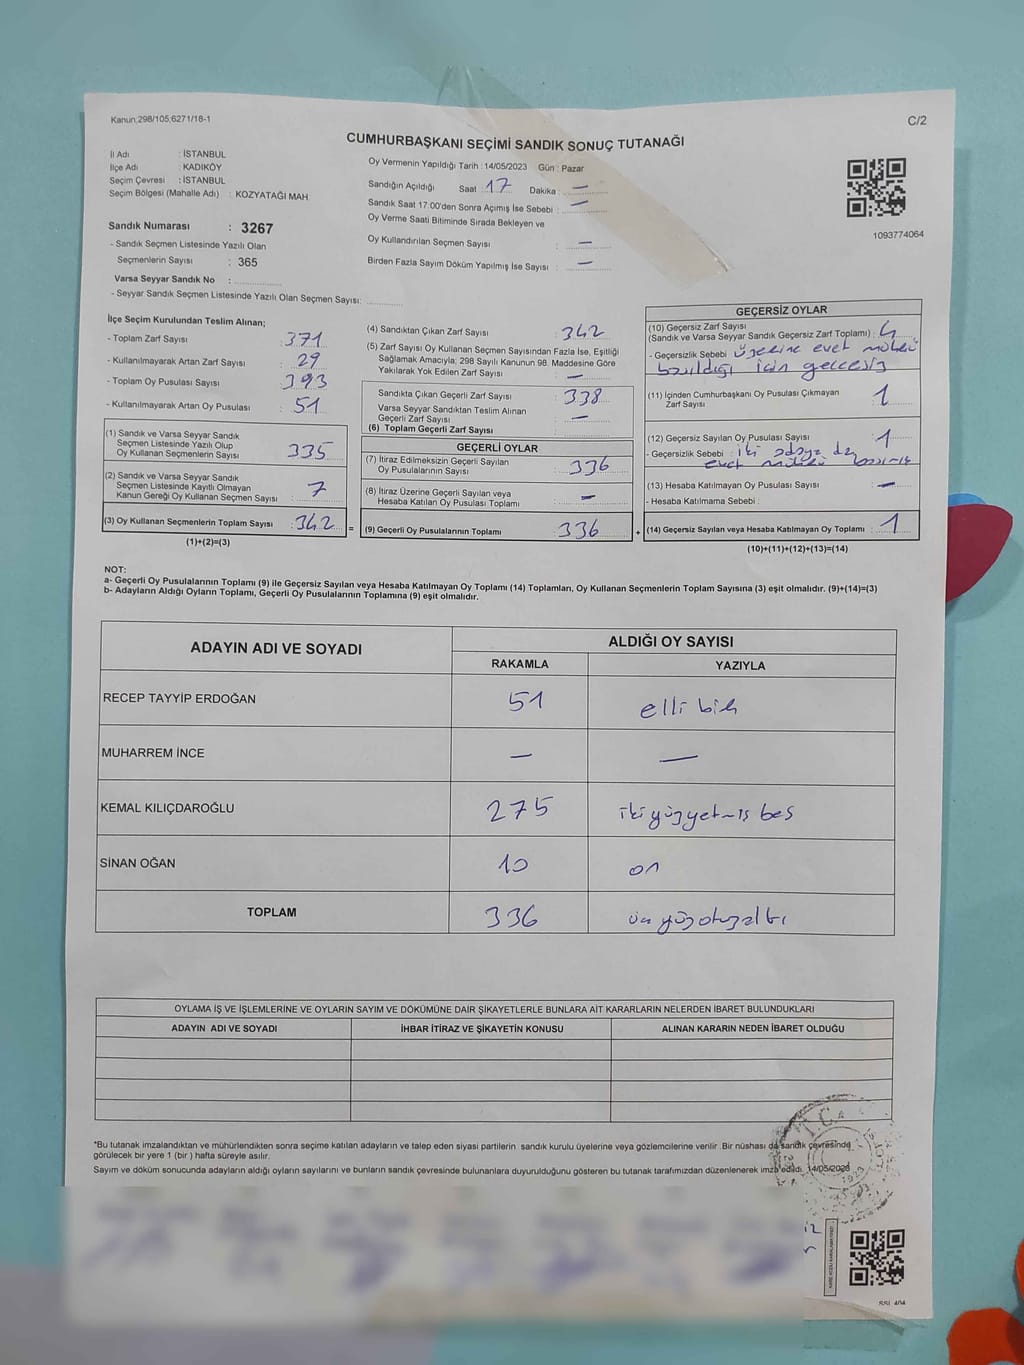 Kanun:298/105;6271/18-1
C/2
CUMHURBAŞKANI SEÇİMİ SANDIK SONUÇ TUTANAĞI
İl Adı : İSTANBUL
İlçe Adı : KADIKÖY
Seçim Çevresi : İSTANBUL
Seçim Bölgesi (Mahalle Adı) : KOZYATAĞI MAH
Sandık Numarası : 3267
- Sandık Seçmen Listesinde Yazılı Olan
Seçmenlerin Sayısı : 365
Varsa Seyyar Sandık No :
- Seyyar Sandık Seçmen Listesinde Yazılı Olan Seçmen Sayısı:
Oy Vermenin Yapıldığı Tarih : 14/05/2023 Gün : Pazar
Sandığın Açıldığı Saat 17 Dakika : —
Sandık Saat 17:00'den Sonra Açımış İse Sebebi : —
Oy Verme Saati Bitiminde Sırada Bekleyen ve
Oy Kullandırılan Seçmen Sayısı : —
Birden Fazla Sayım Döküm Yapılmış İse Sayısı : —
1093774064
İlçe Seçim Kurulundan Teslim Alınan;
- Toplam Zarf Sayısı : 371
- Kullanılmayarak Artan Zarf Sayısı : 29
- Toplam Oy Pusulası Sayısı : 393
- Kullanılmayarak Artan Oy Pusulası : 51
(1) Sandık ve Varsa Seyyar Sandık
Seçmen Listesinde Yazılı Olup
Oy Kullanan Seçmenlerin Sayısı : 335
(2) Sandık ve Varsa Seyyar Sandık
Seçmen Listesinde Kayıtlı Olmayan
Kanun Gereği Oy Kullanan Seçmen Sayısı : 7
(3) Oy Kullanan Seçmenlerin Toplam Sayısı : 342
(1)+(2)=(3)
=
(4) Sandıktan Çıkan Zarf Sayısı : 342
(5) Zarf Sayısı Oy Kullanan Seçmen Sayısından Fazla İse, Eşitliği
Sağlamak Amacıyla; 298 Sayılı Kanunun 98. Maddesine Göre
Yakılarak Yok Edilen Zarf Sayısı : —
Sandıkta Çıkan Geçerli Zarf Sayısı : 338
Varsa Seyyar Sandıktan Teslim Alınan
Geçerli Zarf Sayısı : —
(6) Toplam Geçerli Zarf Sayısı :
GEÇERLİ OYLAR
(7) İtiraz Edilmeksizin Geçerli Sayılan
Oy Pusulalarının Sayısı : 336
(8) İtiraz Üzerine Geçerli Sayılan veya
Hesaba Katılan Oy Pusulası Toplamı : —
(9) Geçerli Oy Pusulalarının Toplamı : 336
+
GEÇERSİZ OYLAR
(10) Geçersiz Zarf Sayısı
(Sandık ve Varsa Seyyar Sandık Geçersiz Zarf Toplamı) : 4
- Geçersizlik Sebebi : Üzerine evet mührü
basıldığı için geçersiz
(11) İçinden Cumhurbaşkanı Oy Pusulası Çıkmayan
Zarf Sayısı : 1
(12) Geçersiz Sayılan Oy Pusulası Sayısı : 1
- Geçersizlik Sebebi : iki adaya da
evet mührü basılmış
(13) Hesaba Katılmayan Oy Pusulası Sayısı : —
- Hesaba Katılmama Sebebi :
(14) Geçersiz Sayılan veya Hesaba Katılmayan Oy Toplamı : 1
(10)+(11)+(12)+(13)=(14)
NOT:
a- Geçerli Oy Pusulalarının Toplamı (9) ile Geçersiz Sayılan veya Hesaba Katılmayan Oy Toplamı (14) Toplamları, Oy Kullanan Seçmenlerin Toplam Sayısına (3) eşit olmalıdır. (9)+(14)=(3)
b- Adayların Aldığı Oyların Toplamı, Geçerli Oy Pusulalarının Toplamına (9) eşit olmalıdır.
ADAYIN ADI VE SOYADI ALDIĞI OY SAYISI
RAKAMLA YAZIYLA
RECEP TAYYİP ERDOĞAN 51 elli bir
MUHARREM İNCE — —
KEMAL KILIÇDAROĞLU 275 ikiyüzyetmiş beş
SİNAN OĞAN 10 on
TOPLAM 336 üçyüzotuzaltı
OYLAMA İŞ VE İŞLEMLERİNE VE OYLARIN SAYIM VE DÖKÜMÜNE DAİR ŞİKAYETLERLE BUNLARA AİT KARARLARIN NELERDEN İBARET BULUNDUKLARI
ADAYIN ADI VE SOYADI İHBAR İTİRAZ VE ŞİKAYETİN KONUSU ALINAN KARARIN NEDEN İBARET OLDUĞU
*Bu tutanak imzalandıktan ve mühürlendikten sonra seçime katılan adayların ve talep eden siyasi partilerin sandık kurulu üyelerine veya gözlemcilerine verilir. Bir nüshası da sandık çevresinde
görülecek bir yere 1 (bir ) hafta süreyle asılır.
Sayım ve döküm sonucunda adayların aldığı oyların sayılarını ve bunların sandık çevresinde bulunanlara duyurulduğunu gösteren bu tutanak tarafımızdan düzenlenerek imza edildi. 14/05/2023
T.C.